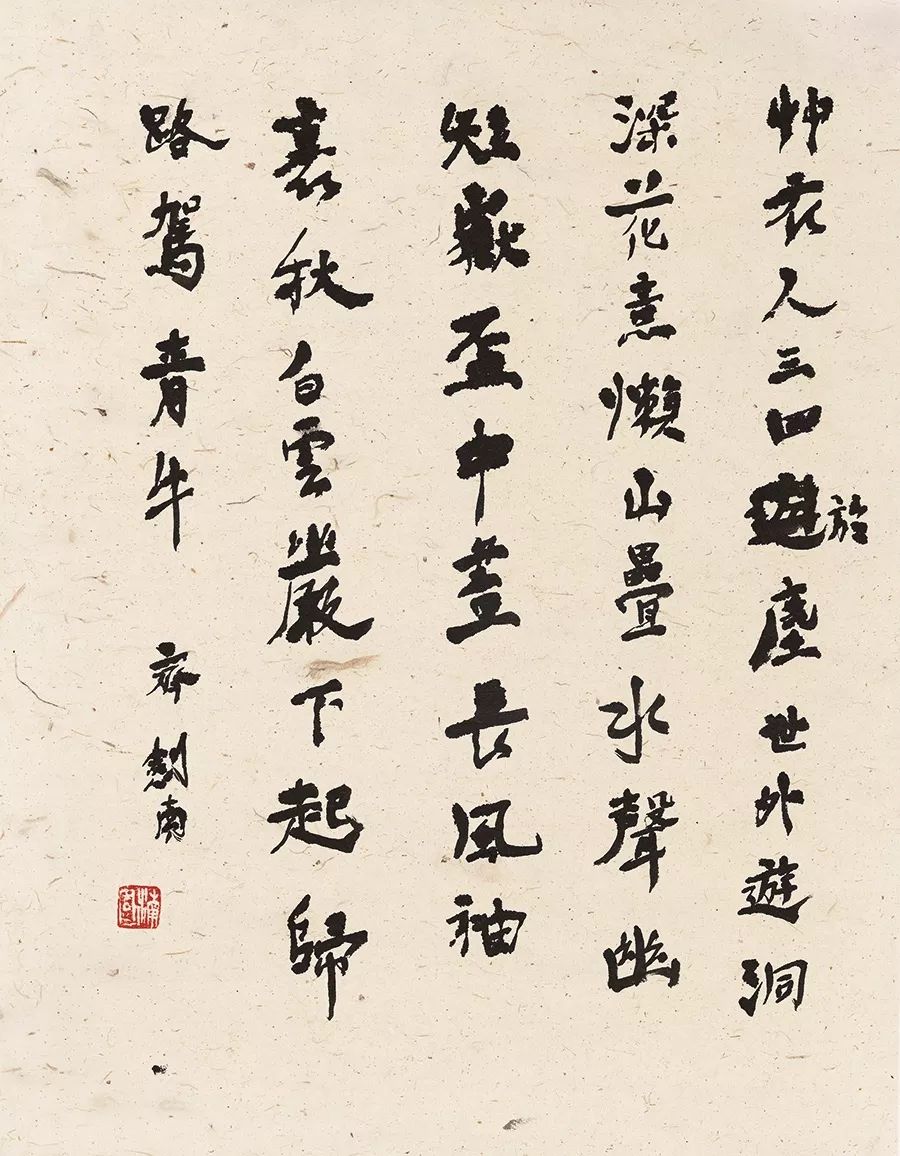 艸衣人三四於塵世外遊洞
深花意懶山疊水聲幽
短嶽盃中畫長風袖
裏秋白雲巖下起歸
路駕青牛
齊劍南